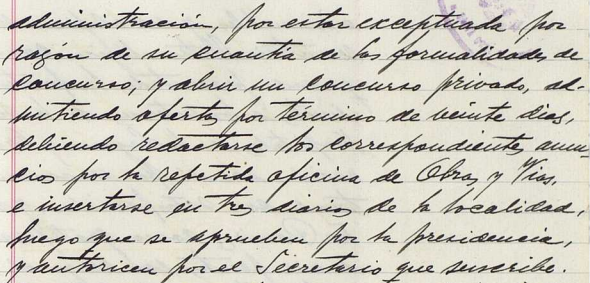 administración, por estar exceptuada por
razón de su cuantía de las formalidades de
concurso; y abrir un concurso privado, ad-
mitiendo ofertas por término de veinte días,
debiendo redactarse los correspondientes anun-
cios por la repetida oficina de Obras y Vías,
e insertarse en tres diarios de la localidad,
luego que se aprueben por la presidencia,
y autoricen por el Secretario que suscribe.